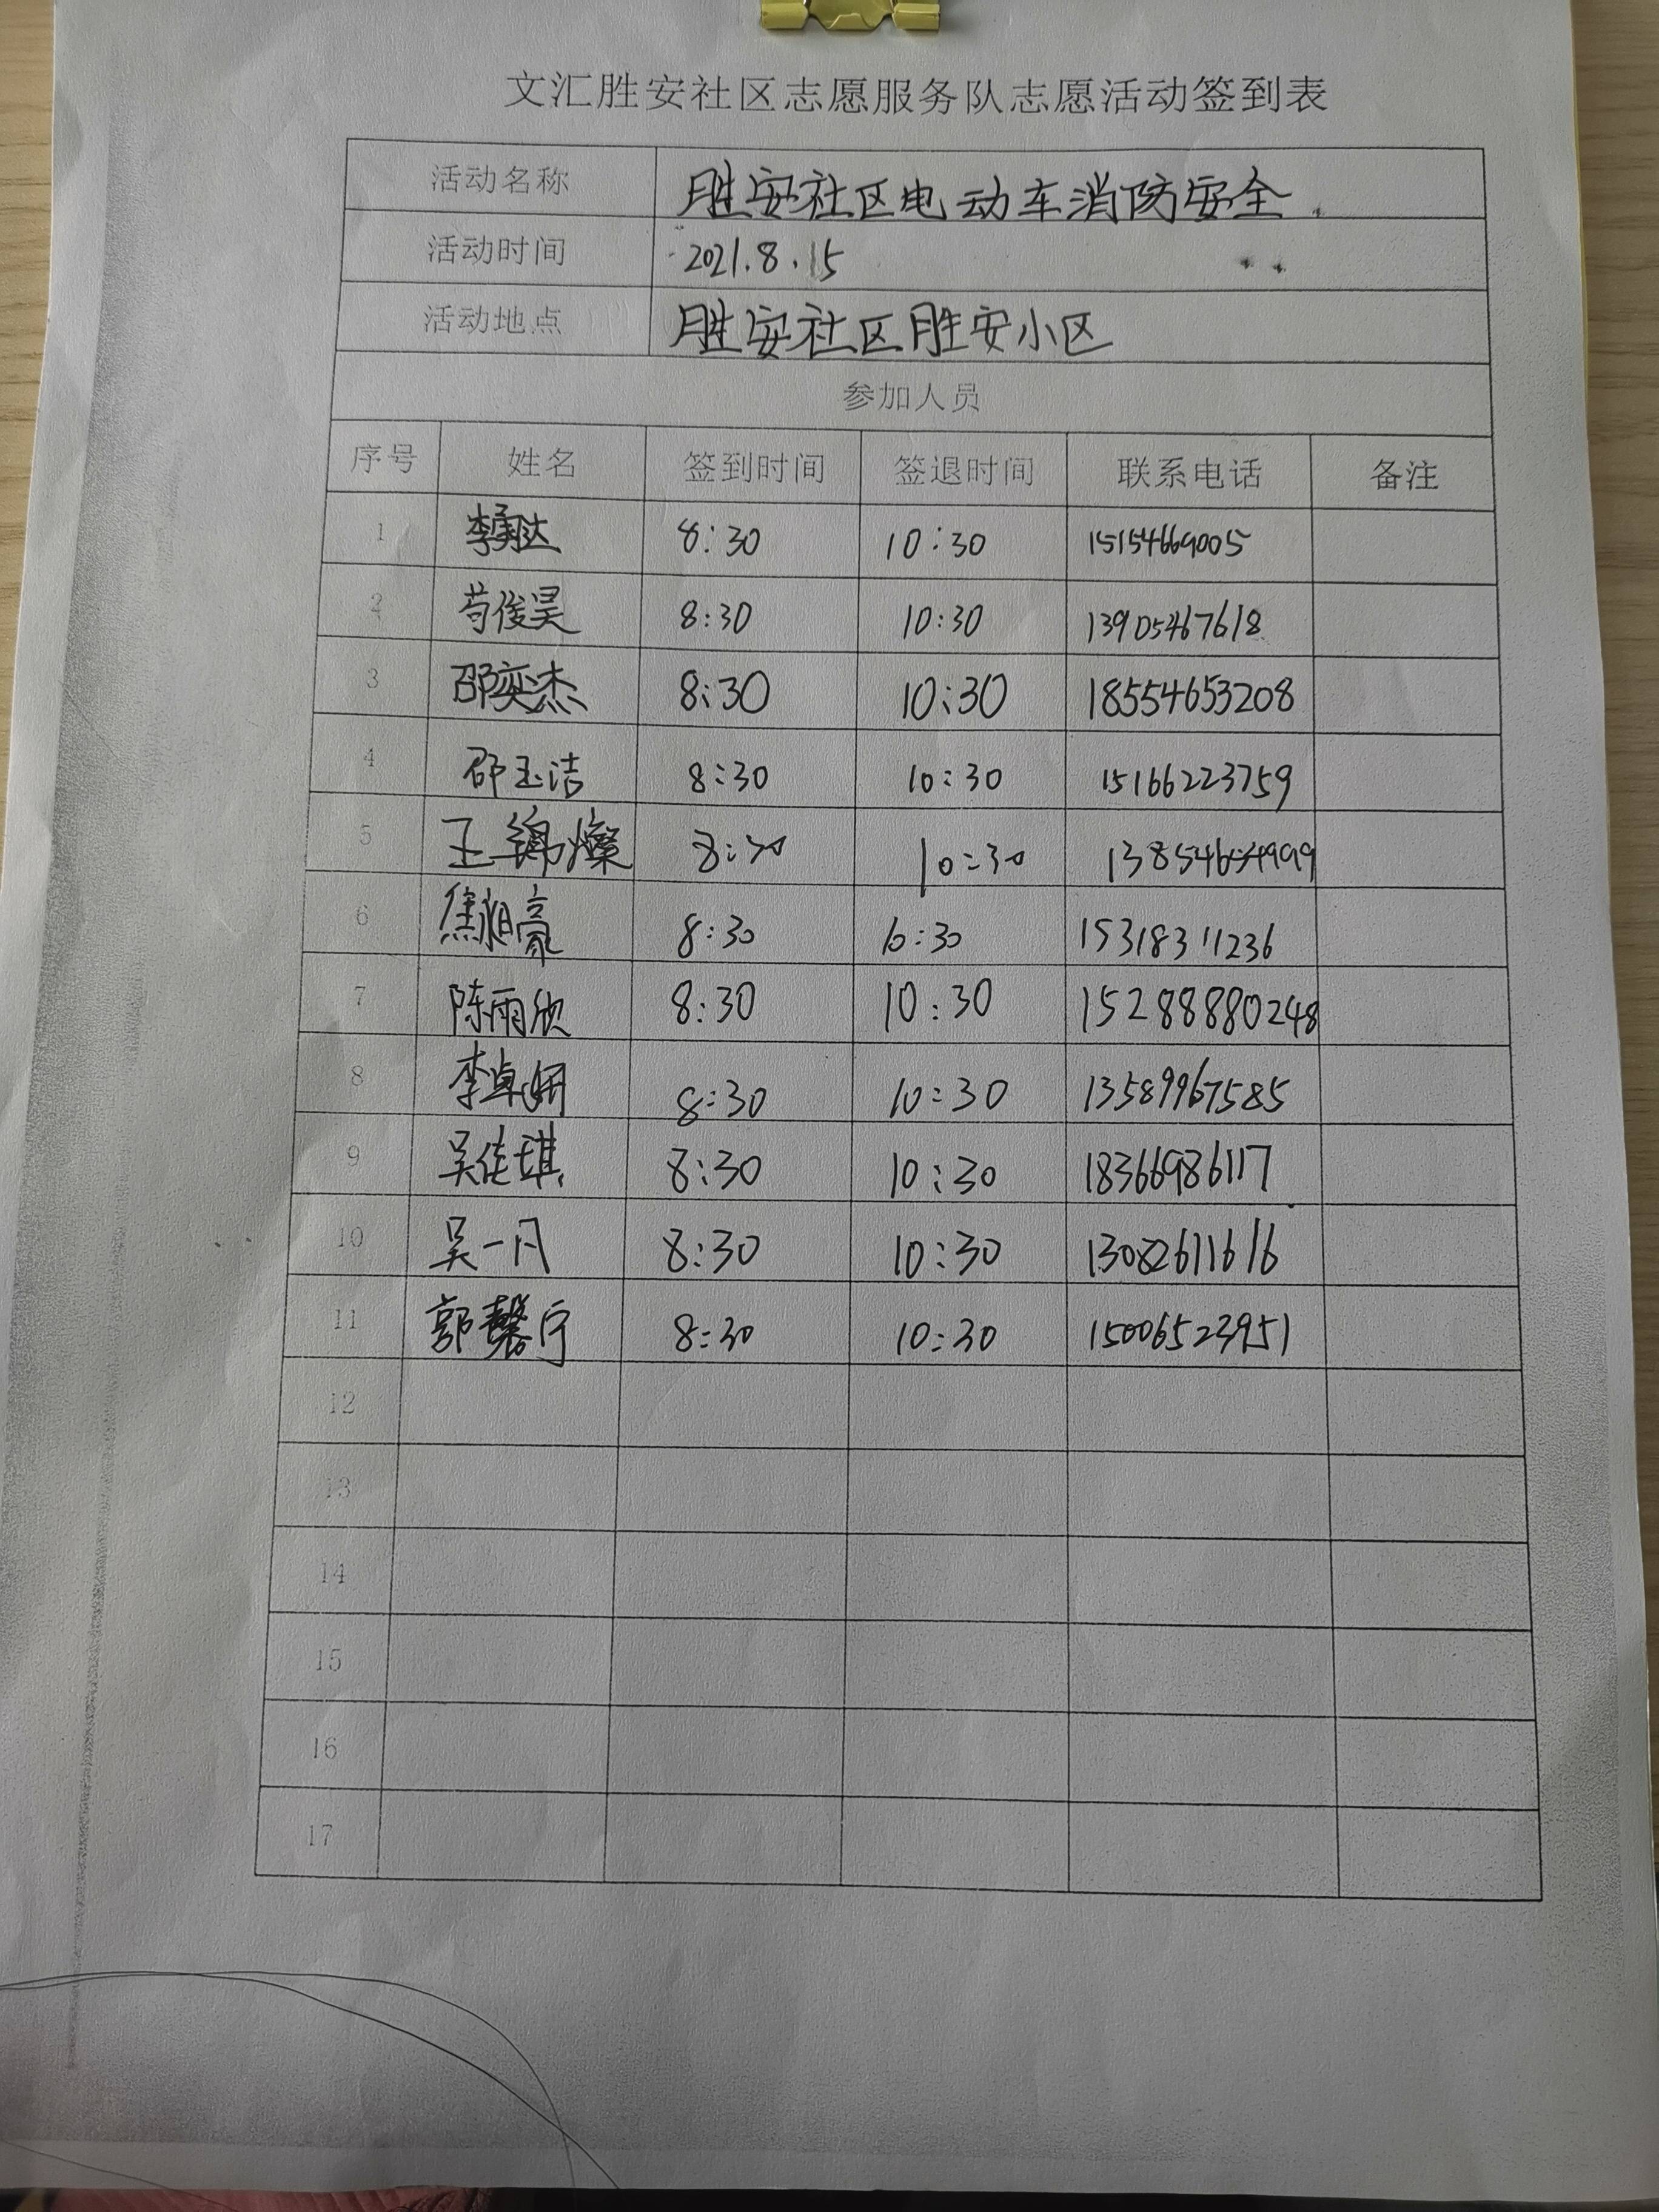 文汇胜安社区志愿服务队志愿活动签到表
活动名称 胜安社区电动车消防安全
活动时间 2021.8.15
活动地点 胜安社区胜安小区
参加人员
序号 姓名 签到时间 签退时间 联系电话 备注
1 8:30 10:30 15154669005
2 苟俊昊 8:30 10:30 13905467618
3 邵奕杰 8:30 10:30 18554653208
4 邵玉洁 8:30 10:30 15166223759
5 王锦燦 8:30 10:30
6 8:30 10:30 15318311236
7 陈雨欣 8:30 10:30 15288880248
8 李卓妍 8:30 10:30 13589967585
9 吴佳琪 8:30 10:30 18366986117
10 吴一凡 8:30 10:30 13082611616
11 郭馨宁 8:30 10:30 15006523951
12
13
14
15
16
17